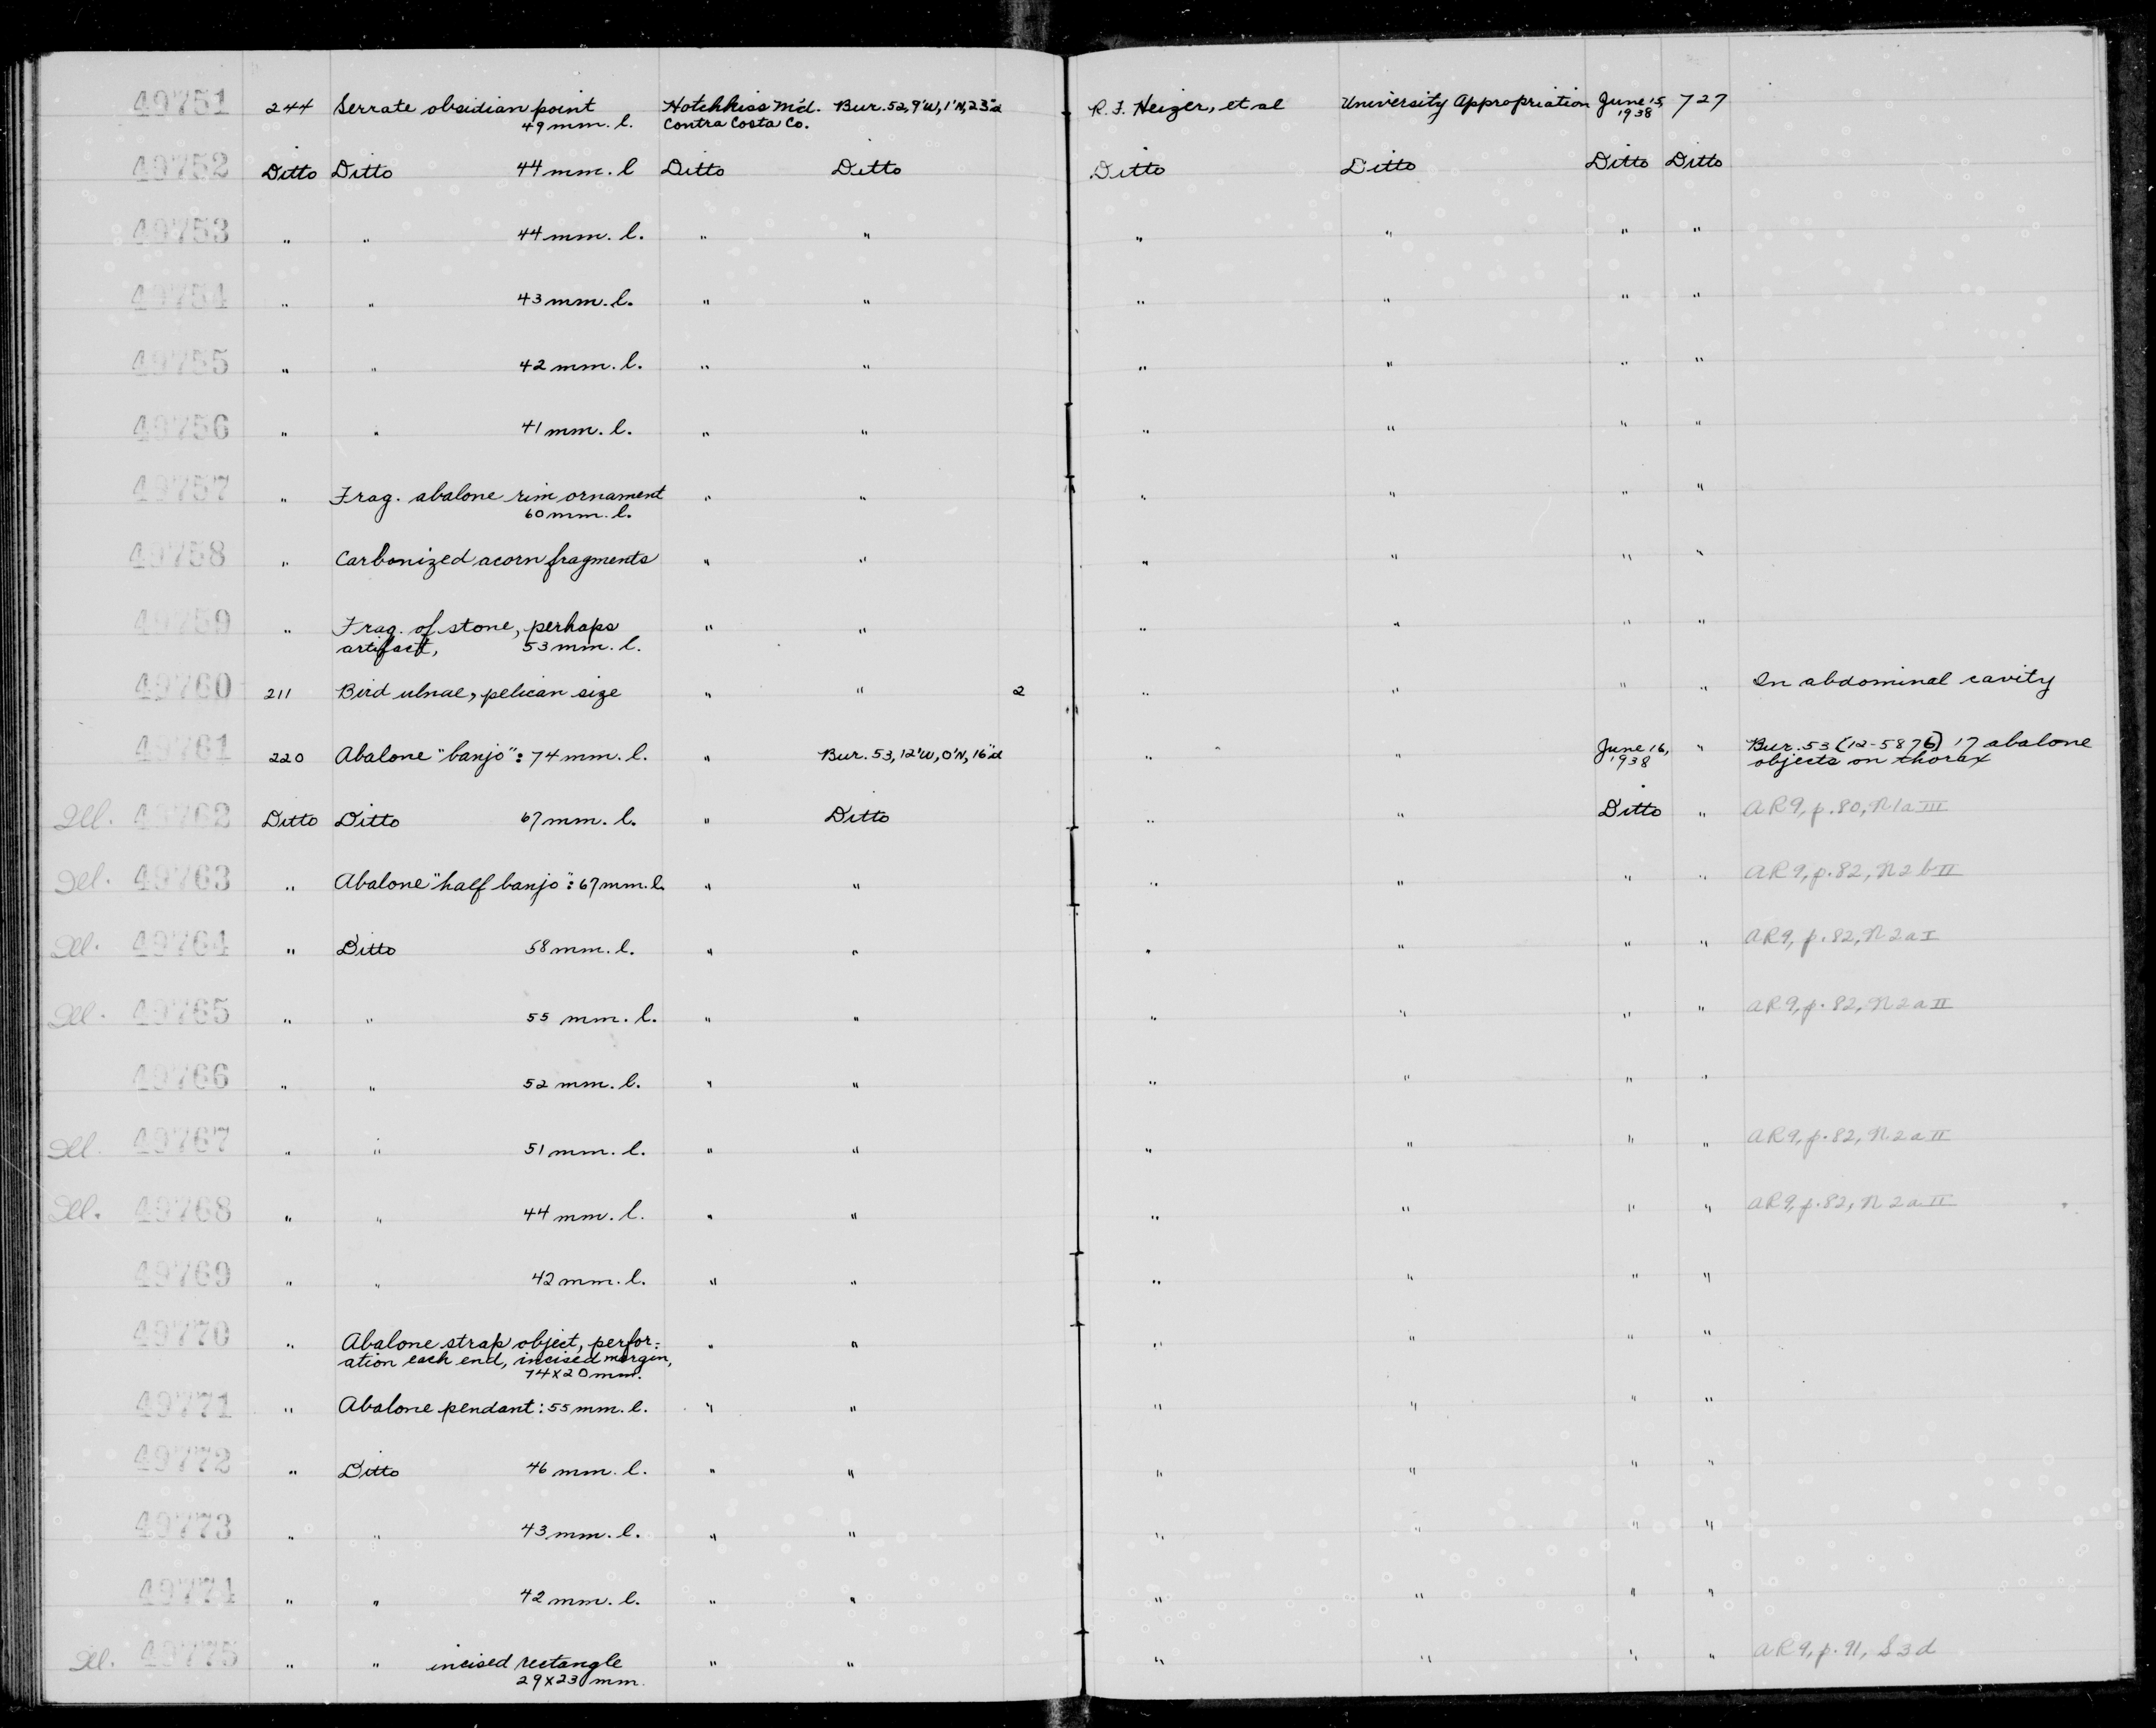 49751 244 Serrate obsidian point Hotchkiss M'd. Bur. 52, 9'W, 1'N, 23"d R. F. Heizer, et al University Appropriation June 15, 727
49 mm. l. Contra Costa Co. 1938
49752 Ditto Ditto 44 mm. l Ditto Ditto Ditto Ditto Ditto Ditto
49753 " " 44 mm. l. " " " " " "
49754 " " 43 mm. l. " " " " " "
49755 " " 42 mm. l. " " " " " "
49756 " " 41 mm. l. " " " " " "
49757 " Frag. abalone rim ornament " " " " " "
60 mm. l.
49758 " Carbonized acorn fragments " " " " " "
49759 " Frag. of stone, perhaps " " " " " "
artifact, 53 mm. l.
49760 211 Bird ulnae, pelican size " " 2 " " " " In abdominal cavity
49761 220 Abalone "banjo": 74 mm. l. " Bur. 53, 12'W, 0'N, 16"d " " June 16, " Bur. 53 (12-5876) 17 abalone
1938 objects on thorax
Ill. 49762 Ditto Ditto 67 mm. l. " Ditto " " Ditto " AR9, p. 80, N1a III
Ill. 49763 " Abalone "half banjo": 67 mm. l. " " " " " " AR9, p. 82, N2 b II
Ill. 49764 " Ditto 58 mm. l. " " " " " " AR9, p. 82, N2a I
Ill. 49765 " " 55 mm. l. " " " " " " AR9, p. 82, N2a II
49766 " " 52 mm. l. " " " " " "
Ill. 49767 " " 51 mm. l. " " " " " " AR9, p. 82, N2a II
Ill. 49768 " " 44 mm. l. " " " " " " AR9, p. 82, N2a II
49769 " " 42 mm. l. " " " " " "
49770 " Abalone strap object, perfor- " " " " " "
ation each end, incised margin,
74x20 mm.
49771 " Abalone pendant: 55 mm. l. " " " " " "
49772 " Ditto 46 mm. l. " " " " " "
49773 " " 43 mm. l. " " " " " "
49774 " " 42 mm. l. " " " " " "
Ill. 49775 " " incised rectangle " " " " " " AR9, p. 91, S3d
29x23 mm.